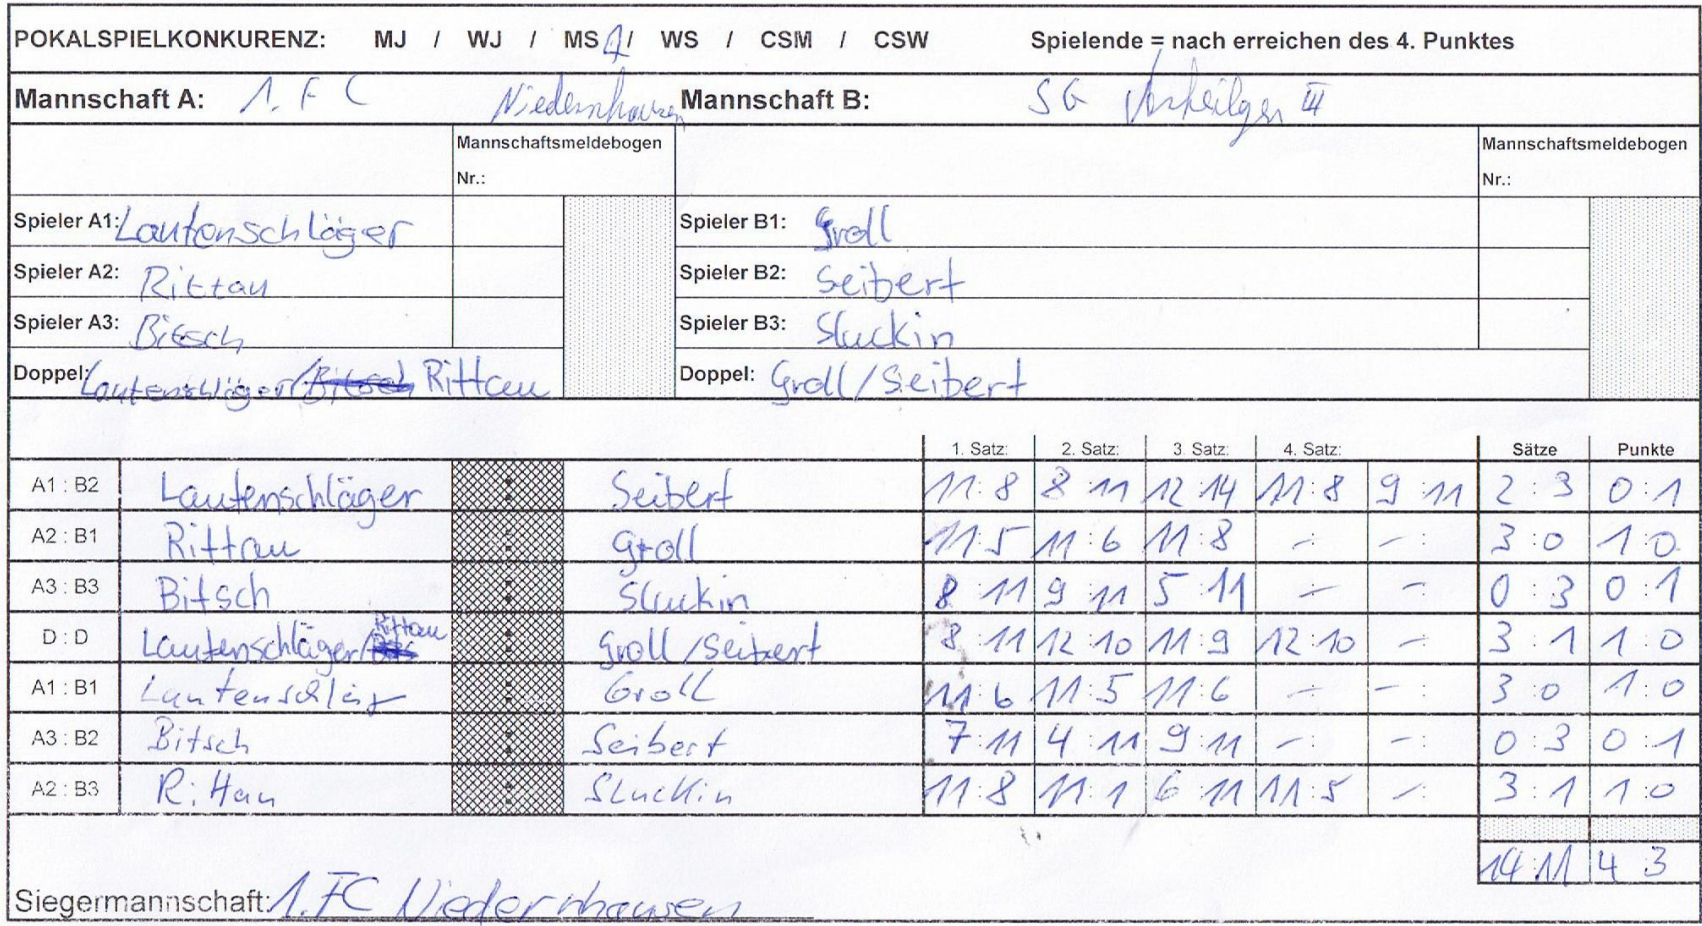 POKALSPIELKONKURENZ: MJ / WJ / MSA / WS / CSM / CSW Spielende = nach erreichen des 4. Punktes
Mannschaft A: 1. FC Niedernhausen Mannschaft B: SG III
Mannschaftsmeldebogen Mannschaftsmeldebogen
Nr.: Nr.:
Spieler A1: Lautenschläger Spieler B1: Groll
Spieler A2: Rittau Spieler B2: Seibert
Spieler A3: Bitsch Spieler B3: Sluckin
Doppel: Lautenschläger/Bitsch Rittau Doppel: Groll/Seibert
1. Satz: 2. Satz: 3. Satz: 4. Satz: Sätze Punkte
A1 : B2 Lautenschläger : Seibert 11:8 8 11 12 14 11:8 9 11 2:3 0:1
A2 : B1 Rittau : Groll 11:5 11:6 11:8 -: -: 3:0 1 0
A3 : B3 Bitsch : Sluckin 8:11 9:11 5:11 - - 0:3 0:1
D : D Lautenschläger/Rittau : Groll/Seibert 8:11 12:10 11:9 12:10 -: 3:1 1:0
A1 : B1 : Groll 11:6 11:5 11:6 - -: 3:0 1:0
A3 : B2 Bitsch : Seibert 7:11 4:11 9:11 -: -: 0:3 0:1
A2 : B3 Rittau : Sluckin 11:8 11:1 6:11 11:5 -: 3:1 1:0
14:11 4:3
Siegermannschaft: 1.FC Niedernhausen